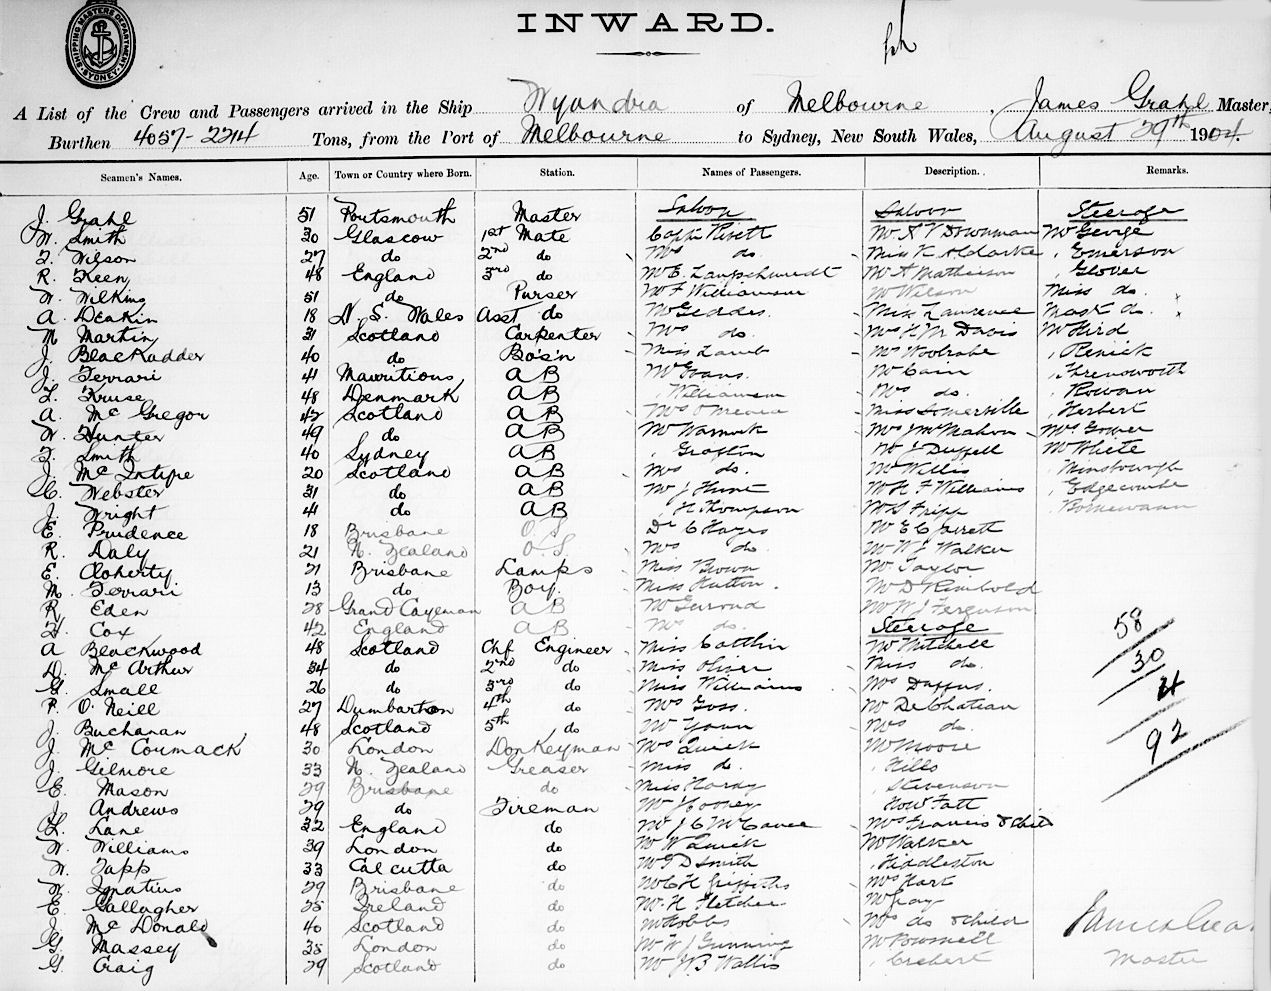 INWARD.
SHIPPING MASTERS DEPARTMENT SYDNEY
A List of the Crew and Passengers arrived in the Ship Wyandra of Melbourne, James Grahl Master,
Burthen 4057-2214 Tons, from the Port of Melbourne to Sydney, New South Wales, August 29th 1904.
Seamen's Names. Age. Town or Country where Born. Station. Names of Passengers. Description. Remarks.
J. Grahl 51 Portsmouth Master Saloon Saloon Steerage
W. Smith 30 Glascow 1st Mate Capt Mr Downman Mr George
F. Wilson 27 do 2nd do Mrs do. Miss Emerson
R. Keen 48 England 3rd do Mr E. Mr A Mathieson Glover
W. Wilkins 51 do Purser Mr F Williamson Mr Wilson Miss do.
A. Deakin 18 N. S. Wales Asst do Mr Geddes. Miss Lawrence Mast do.
N Martin 31 Scotland Carpenter Mrs do. Mrs Davis Mr Hird
J. Blackadder 40 do Bo's'n Miss Lamb Mrs Renick
J. Ferrari 41 Mauritious AB Mr Evans. Mr Cain
F. Kruse 48 Denmark AB Williamson Mrs do. Rowan
A. McGregor 42 Scotland AB Mrs O'Meara Miss Somerville Herbert
W. Hunter 49 do AB Mr Warnock Mrs J McMahon Mrs Gower
F. Smith 40 Sydney AB Grafton Mr J Duffell Mr White
J. McIntyre 20 Scotland AB Mrs do. Mr Willis
C. Webster 31 do AB Mr J Hunt Mr H F Williams Edgecombe
J. Wright 41 do AB H Thompson Mr S Fripp Bornemann
E. Prudence 18 Brisbane O.S. Dr C Hayes Mr E C Garrett
R. Daly 21 N. Zealand O.S. Mrs do. Mr W J Walker
E. Cloherty 21 Brisbane Lamps Miss Brown Mr Taylor
M. Ferrari 13 do Boy. Miss Hutton. Mr D Rimbold
R. Eden 28 Grand Cayeman AB Mr Mr W J Ferguson
H. Cox 42 England AB Mrs do. Steerage 58
A Blackwood 48 Scotland Chf Engineer Miss Cattlin Mr Mitchell
D. McArthur 34 do 2nd do Miss Oliver Miss do. 30
G. Small 26 do 3rd do Miss Williams Mrs Duffus. 4
P. O'Neill 27 Dumbarton 4th do Mrs Goss. Mr De Chateau
J. Buchanan 48 Scotland 5th do Mr Youn Mrs do. 92
J. McCormack 30 London Donkeyman Mrs Quick Mr Moore
J. Gilmore 33 N. Zealand Greaser Miss do. Hills
E. Mason 29 Brisbane do Miss Hardy Stevenson
J. Andrews 29 do Fireman Mr J Cooney How Fatt
L. Lane 32 England do Mr J C McCance Mrs Francis & Child
W. Williams 39 London do Mr W Quick Mr Walker
W. Tapp 33 Calcutta do Mr T D Smith Hiddleston
W. Ignatius 29 Brisbane do Mr C H Griffiths Mrs Hart
E. Gallagher 25 Ireland do Mr H Fletcher Mr Gray
J. McDonald 40 Scotland do Mr Hobbs Mrs do & child James Grahl
G. Massey 35 London do Mr W J Gunning Mr Bousnell
G. Craig 29 Scotland do Mr J B Wallis Crebert Master